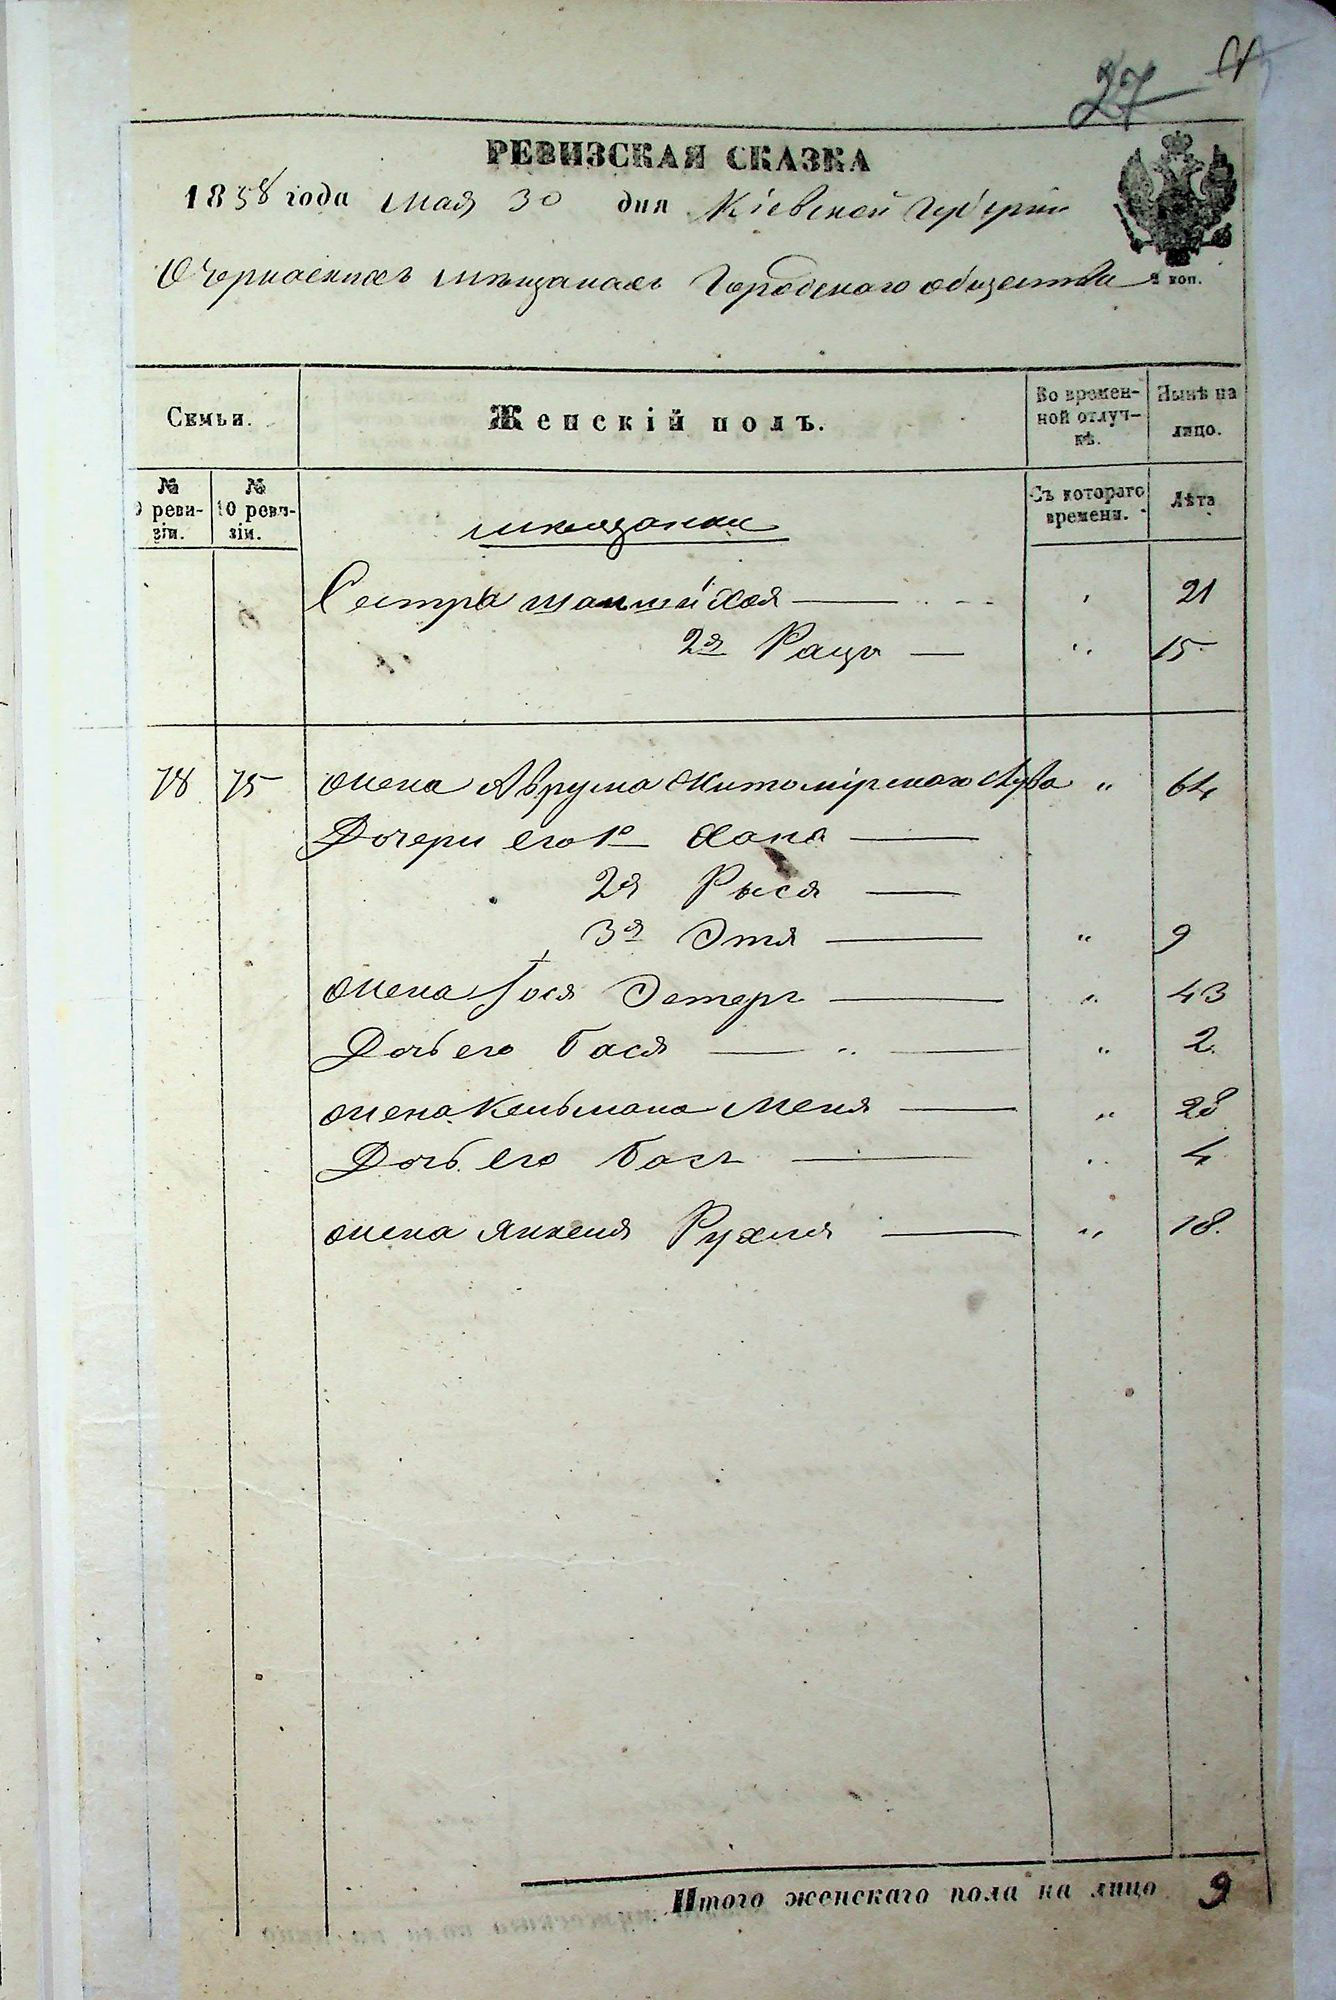 27
РЕВИЗСКАЯ СКАЗКА
1858 года мая 30 дня Кіевской Губерніи
О Черкаскихъ мещанахъ Городского общества
2 коп.
Семьи. Женскій полъ. Во времен- Нынѣ на
ной отлуч- лицо.
кѣ.
№ № Съ котораго Лѣта
9 реви- 10 реви- времени.
зіи. зіи.
мещанки
Сестра Хая — 21
2я Раца — 15
78 75 жена Аврума Житомірскаго " 64
Дочери его 1я Хана —
2я Рыся —
3я Этя — " 9
жена Іося Эстеръ — " 43
Дочь его Бася — " — " 2
жена Кельмана Меня — " 28
Дочь его Бася — " 4
жена Янкеля Рухля — " 18.
Итого женскаго пола на лицо 9